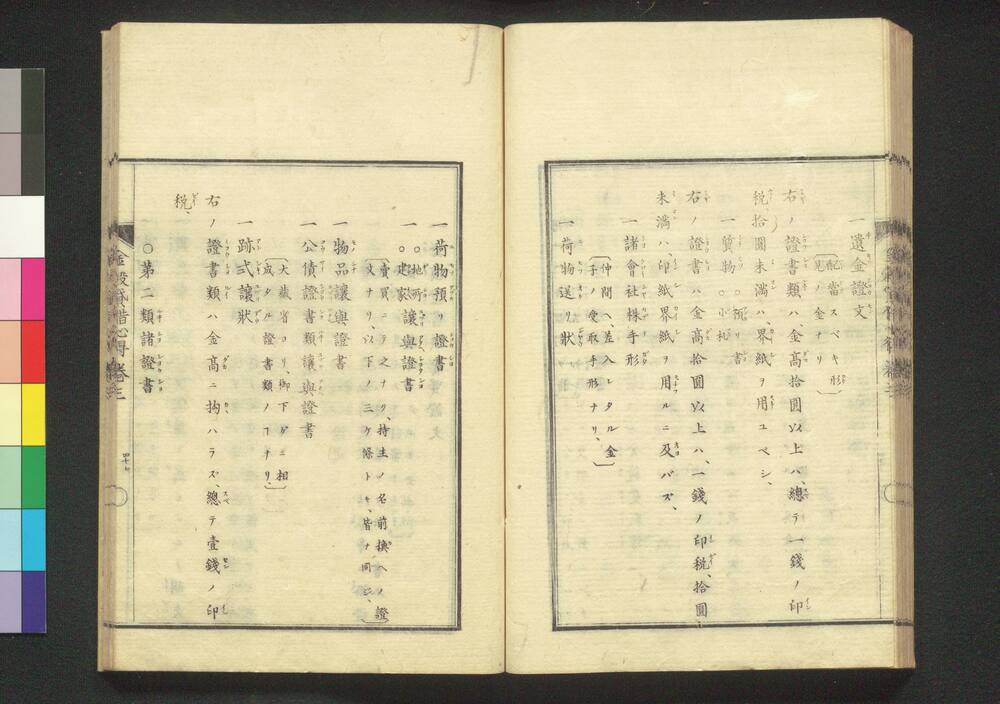 一遺金證文
〔配當スベキ形
見ノ金ナリ〕
右ノ證書類ハ、金高拾圓以上ハ、總テ一錢ノ印
税、拾圓未滿ハ界紙ヲ用ユベシ、
一質物
右ノ證書ハ金高拾圓以上ハ、一錢ノ印税、拾圓
未滿ハ、印紙界紙ヲ用ルニ及バズ、
一諸會社株手形
〔仲間ヘ差入レタル金
子ノ受取手形ナリ、〕
一荷物送リ狀
一荷物預リ證書
一○地所○建家讓與證書
〔賣買ニテ之ナク、持主ノ名前換ヘノ證
文ナリ、以下ノ三ケ條トモ、皆ナ同ジ、〕
一物品讓與證書
一公債證書類讓與證書
〔大藏省ヨリ、御下ゲニ相
成タル證書類ノコナリ、〕
一跡式讓狀
右ノ證書類ハ金高ニ拘ハラズ、總テ壹錢ノ印
税、
○第二類諸證書
金穀貸借心得 卷之二
四十七